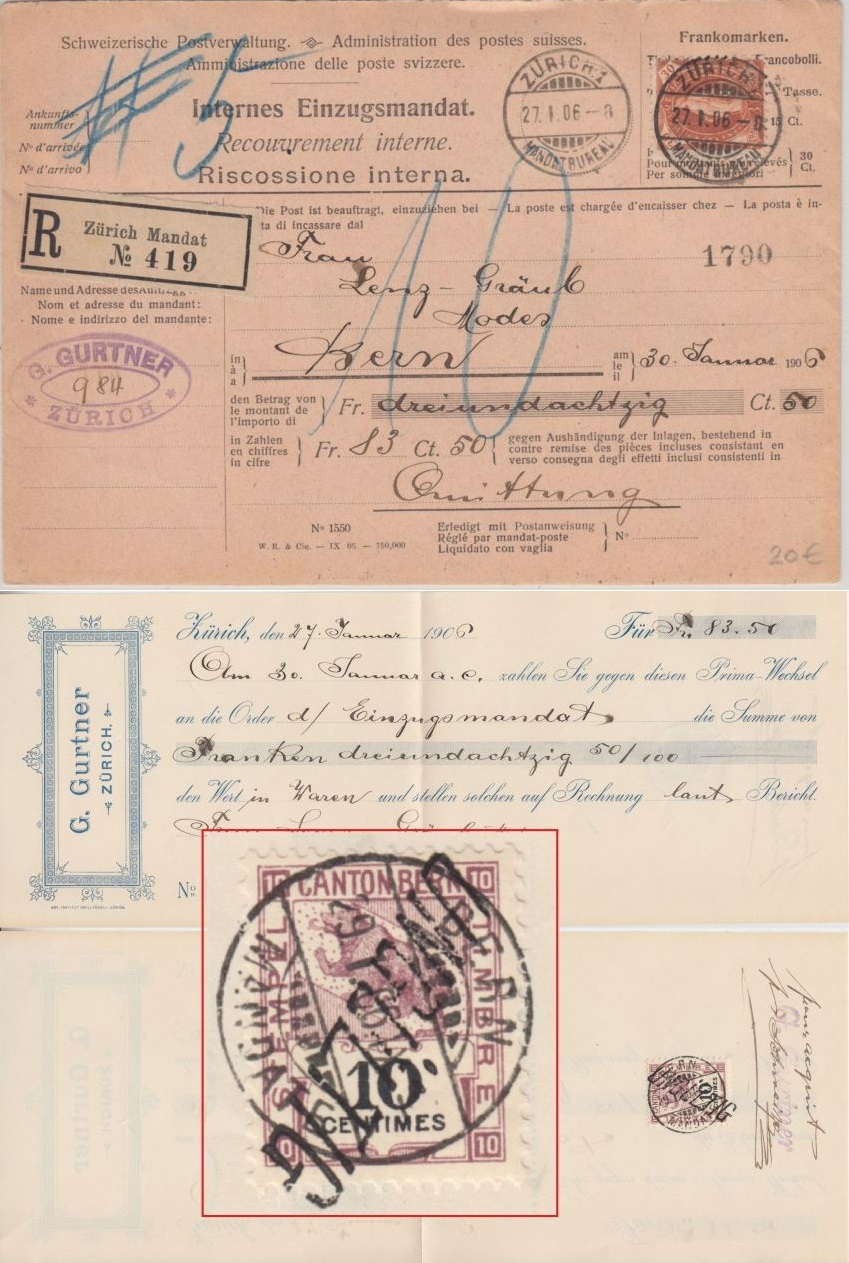 Schweizerische Postverwaltung. Administration des postes suisses.
Amministrazione delle poste svizzere.
Frankomarken.
Francobolli.
Tasse.
15 Ct.
Pour
Per
30 Ct.
# 5
Ankunfts-
nummer
No d'arrivée
No d'arrivo
Internes Einzugsmandat.
Recouvrement interne.
Riscossione interna.
ZÜRICH 1
27.I.06-8
MANDATBUREAU
30
ZÜRICH 1
27.I.06-8
R Zürich Mandat
No 419
Die Post ist beauftragt, einzuziehen bei — La poste est chargée d'encaisser chez — La posta è in-
ta di incassare dal
1790
Frau
Lenz-Gräub
Modes
10
Name und Adresse des
Nom et adresse du mandant:
Nome e indirizzo del mandante:
G. GURTNER
984
ZÜRICH
in
à
a
Bern
am
le
il
30. Januar 1906
den Betrag von
le montant de
l'importo di
Fr. dreiundachtzig Ct. 50
in Zahlen
en chiffres
in cifre
Fr. 83 Ct. 50
gegen Aushändigung der Inlagen, bestehend in
contre remise des pièces incluses consistant en
verso consegna degli effetti inclusi consistenti in
Quittung
No 1550
W. R. & Cie. — IX 05 — 750,000
Erledigt mit Postanweisung
Réglé par mandat-poste
Liquidato con vaglia
No
20€
G. Gurtner
ZÜRICH.
Zürich, den 27. Januar 1906 Für Fr. 83.50
Am 30. Januar a.c. zahlen Sie gegen diesen Prima-Wechsel
an die Order d/ Einzugsmandat die Summe von
Franken dreiundachtzig 50/100
den Wert in Waren und stellen solchen auf Rechnung laut Bericht.
No
10 CANTON BERN 10
STEMPEL
TIMBRE
BERN
MANDAT
10
CENTIMES
10 10
BERN
MANDAT